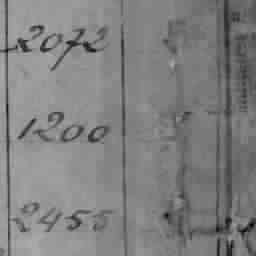 2072
1200
2455